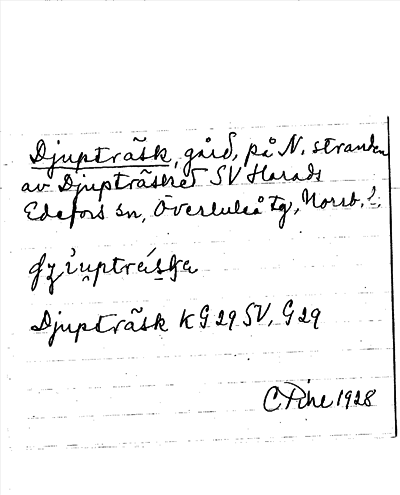 Djupträsk, gård, på N. stranden
av Djupträsket SV Harads
Edefors sn, Överluleå tg, Norrb. l.
Djupträsk KG 29 SV, G 29
C Pihl 1928